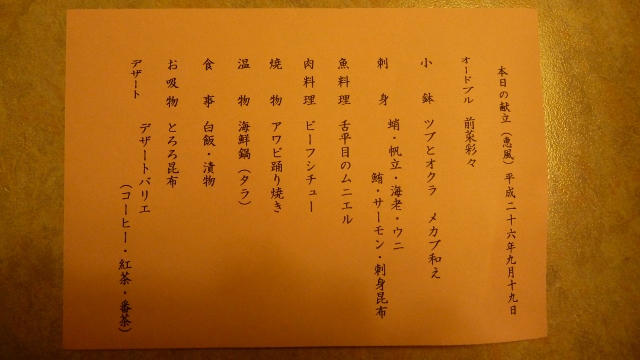 本日の献立（恵風）平成二十六年九月十九日
オードブル　前菜彩々
小鉢　ツブとオクラ　メカブ和え
刺身　蛸・帆立・海老・ウニ
鮪・サーモン・刺身昆布
魚料理　舌平目のムニエル
肉料理　ビーフシチュー
焼物　アワビ踊り焼き
温物　海鮮鍋（タラ）
食事　白飯・漬物
お吸物　とろろ昆布
デザート　デザートバリエ
（コーヒー・紅茶・番茶）